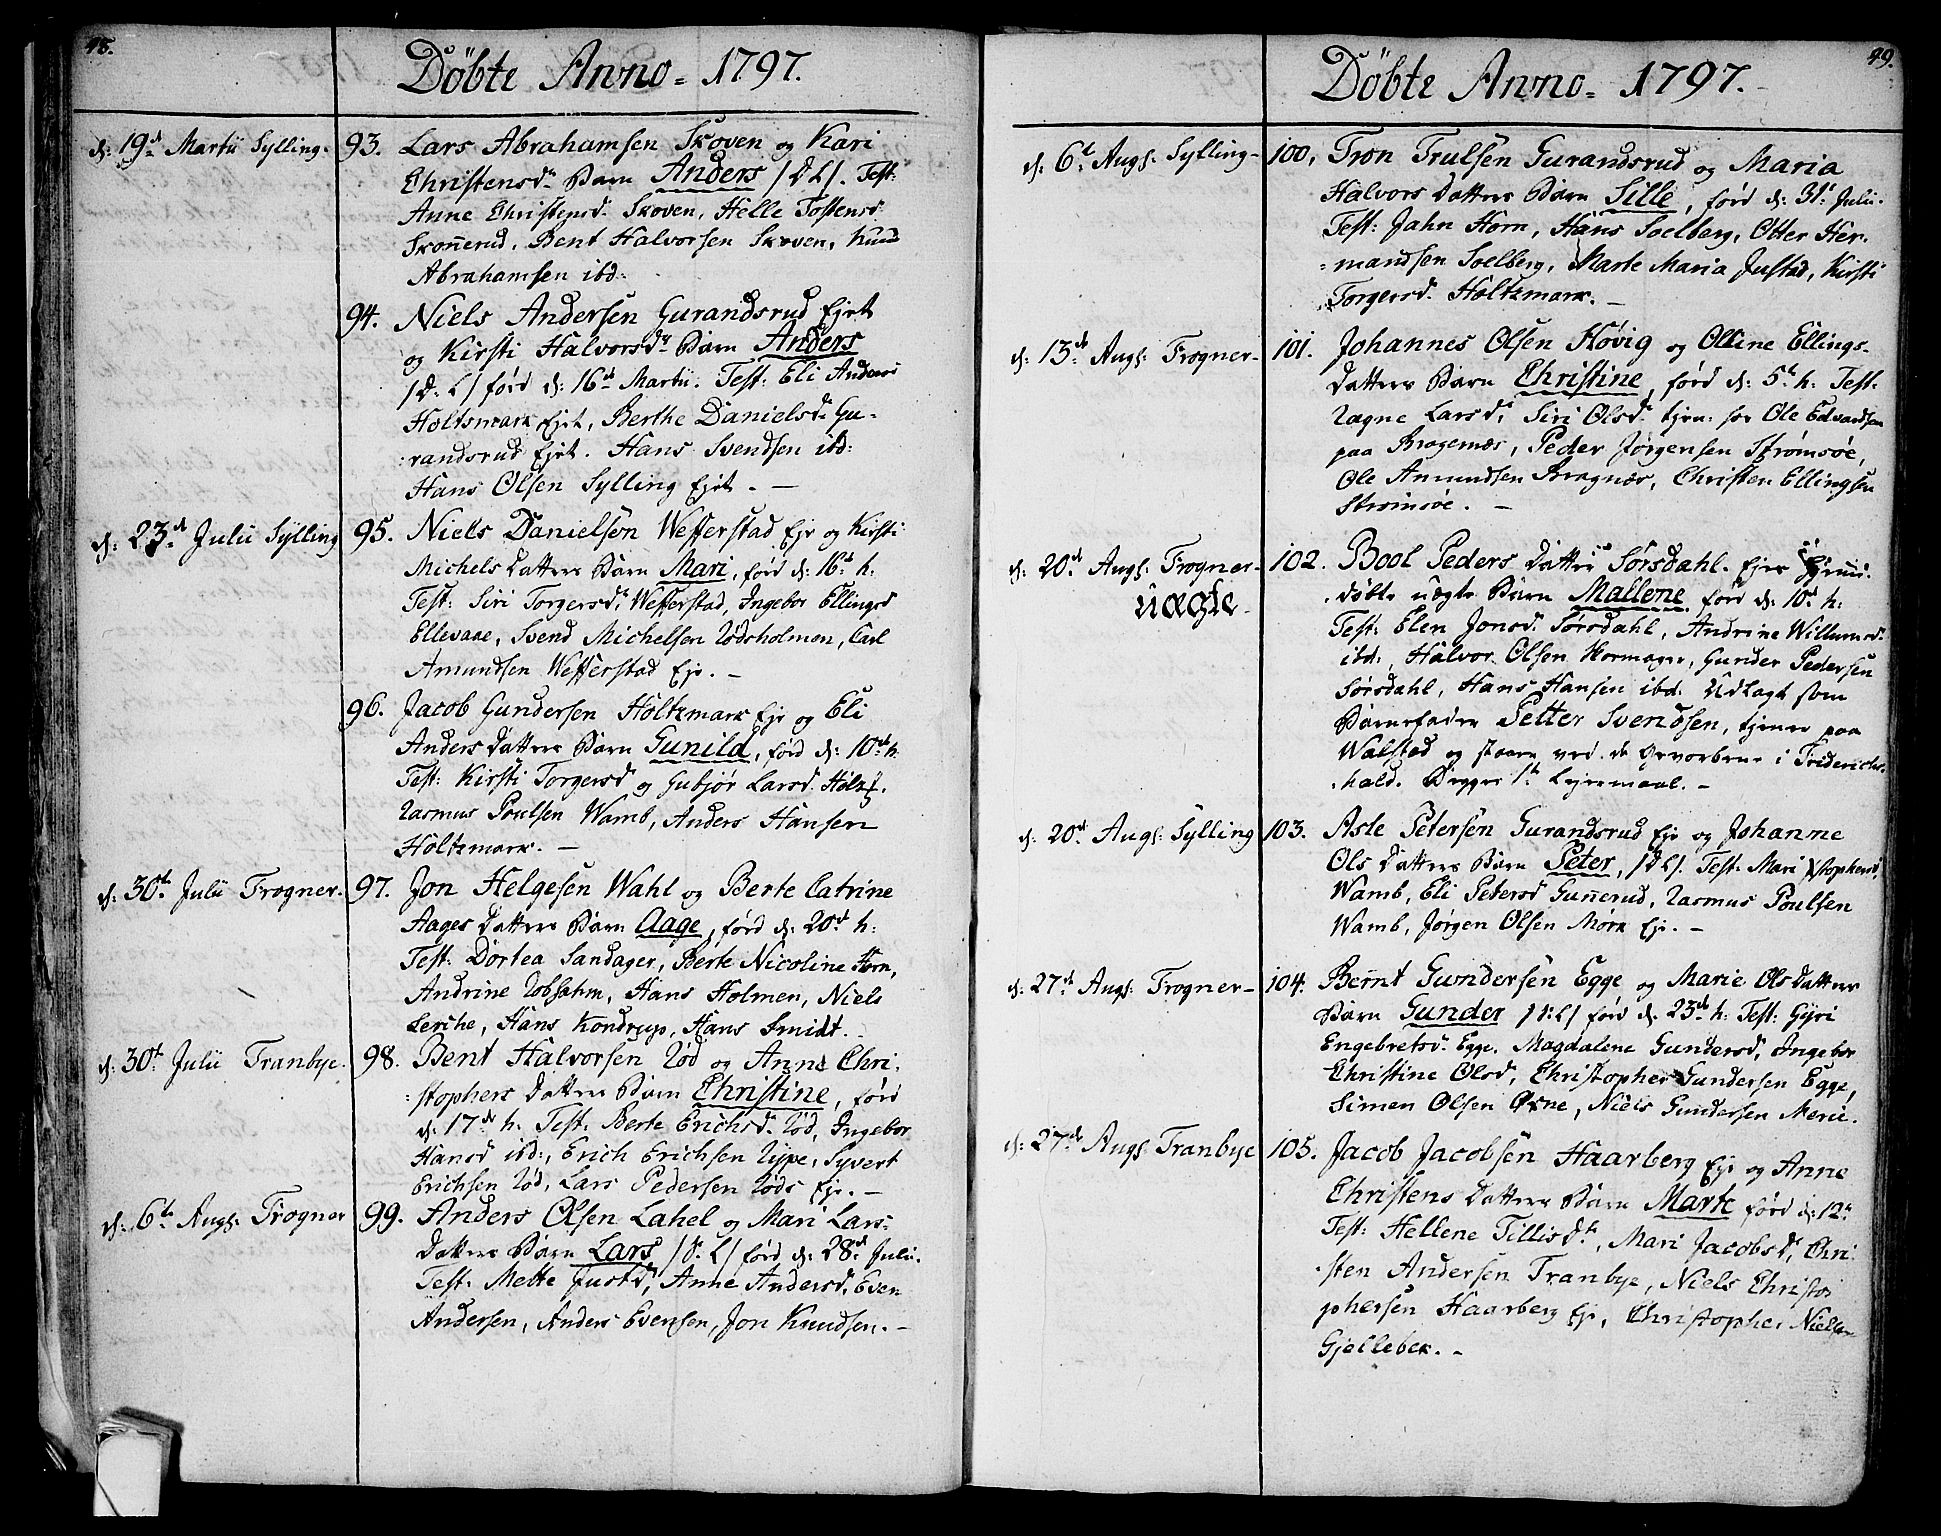 48.
Döbte Anno = 1797.
d: 19de Martii Sylling. 93. Lars Abrahamsen Skoven og Kari
Christensdr Barn Anders /D.L/. Test:
Anne Christensd. Skoven, Helle Tostensd.
Skonnerud, Bent Halvorsen Skoven, Knud
Abrahamsen ibd:
94. Niels Andersen Gurandsrud Ejet
og Kirsti Halvorsdr Barn Anders
/D. L/ förd d: 16de Martii. Test: Eli Andersd
Holtsmark Ejet, Berthe Danielsd. Gu-
:randsrud Ejet. Hans Svendsen ibd:
Hans Olsen Sylling Ejet. —
d: 23de Julii Sylling 95. Niels Danielsön Wefferstad Eje og Kirsti
Michels Datters Barn Mari, förd d: 16de h:
Test: Siri Torgersd. Wefferstad, Ingebor Ellingsd
Ellevane, Svend Michelsen Rödsholmen, Carl
Amundsen Wefferstad Eje. —
96. Jacob Gundersen Holtzmark Eje og Eli
Anders Datters Barn Gunild, förd d: 10de h.
Test: Kirsti Torgersd og Gubjör Larsd. Holtz.
Rasmus Poulsen Wamb, Anders Hansen
Holtzmark. —
d: 30te Julii Frogner. 97. Jon Helgesen Wahl og Berte Catrine
Aages Datters Barn Aage, förd d: 20de h:
Test: Dortea Sandager, Berte Nicoline Horn,
Andrine Robsahm, Hans Holmen, Niels
Lerche, Hans Kondrup, Hans Smidt. —
d: 30te Julii Tranbye. 98. Bent Halvorsen Röd og Anne Chri-
:stophers Datters Barn Christine, förd
d: 17de h: Test: Berte Erichsd. Röd, Ingebor
Hansd ibd:, Erich Erichsen Rype, Syvert
Erichsen Röd, Lars Pedersen Röds Eje. —
d: 6te Augs: Frogner 99. Anders Olsen Lahel og Mari Lars-
Datters Barn Lars /D: L/ förd d: 28de Julii.
Test: Mette Justd, Anne Andersd, Even
Andersen, Anders Evensen, Jon Knudsen. —
49.
Döbte Anno = 1797.
d: 6te Augs: Sylling— 100, Tron Trulsen Gurandsrud og Maria
Halvors Datters Barn Sille, förd d: 31te Julii.
Test: Jahn Horn, Hans Soelberg, Otter Her-
=mandsen Soelberg, Marte Maria Justad, Kirsti
Torgersd. Holtzmark. —
d: 13de Augs: Frogner— 101. Johannes Olsen Hövig og Olline Ellings-
Datters Barn Christine, förd d: 5te h: Test:
Ragne Larsd, Siri Olsd. tjen: hos Ole Edvardsen
paa Bragernæs, Peder Jörgensen Strömsöe,
Ole Amundsen Bragnæs, Christen Ellingsen
Strömsöe. —
d: 20de Augs: Frogner— 102. Bool Peders Datter Sörsdahl Ejes Hjemme-
uægte
döbte uægte Barn Mallene, förd d: 10de h:
Test: Elen Jonsd. Sörsdahl, Andrine Willumsd.
ibd:, Halvor Olsen Hormager, Gunder Pedersen
Sörsdahl, Hans Hansen ibd: Udlagt som
Barnefader Petter Svendsen, tjener paa
Walstad og staar ved de Hvervbene i Friderichs-
hald. Begges 1te Lejermaal. —
d: 20de Augs: Sylling 103. Asle Petersen Gurandsrud Eje og Johanne
Ols Datters Barn Peter, /D.L/. Test: Mari Stophersd.
Wamb, Eli Petersd Gunnerud, Rasmus Poulsen
Wamb, Jörgen Olsen Mörk Eje. —
d: 27de Augs: Frogner— 104. Bernt Gundersen Egge og Marie Ols Datters
Barn Gunder /D:L/ förd d: 23de h: Test: Gyri
Engebretsd. Egge, Magdalene Gundersd, Ingebor
Christine Olsd, Christopher Gundersen Egge,
Simen Olsen Öxne, Niels Gundersen Merie.
d: 27de Augs: Tranbye 105. Jacob Jacobsen Haarberg Eje og Anne
Christens Datters Barn Marte förd d: 12te
Test: Hellene Tillisdtr, Mari Jacobsd, Chri
:sten Andersen Tranbye, Niels Christo
phersen Haarberg Eje, Christopher Nielsen
Gjellebek. —